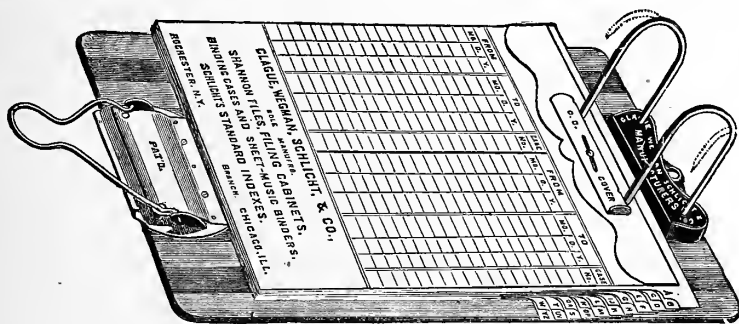 CLAGUE, WEGMAN, SCHLICHT, & CO.,
SOLE MANUFRS.
SHANNON FILES, FILING CABINETS,
BINDING CASES AND SHEET-MUSIC BINDERS,
SCHLICHTS STANDARD INDEXES.
ROCHESTER, N.Y. BRANCH. CHICAGO, ILL.
FROM TO CASE FROM TO CASE
MO. D. Y. MO. D. Y. NO. MO. D. Y. MO. D. Y. NO.
O.C. COVER
MANUFACTURERS
PAT'D.